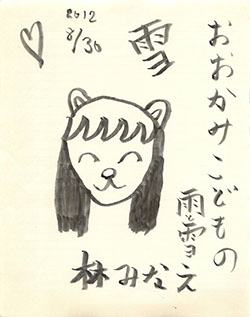 2012
8/30
雪
おおかみこどもの
雨と雪
林みなえ